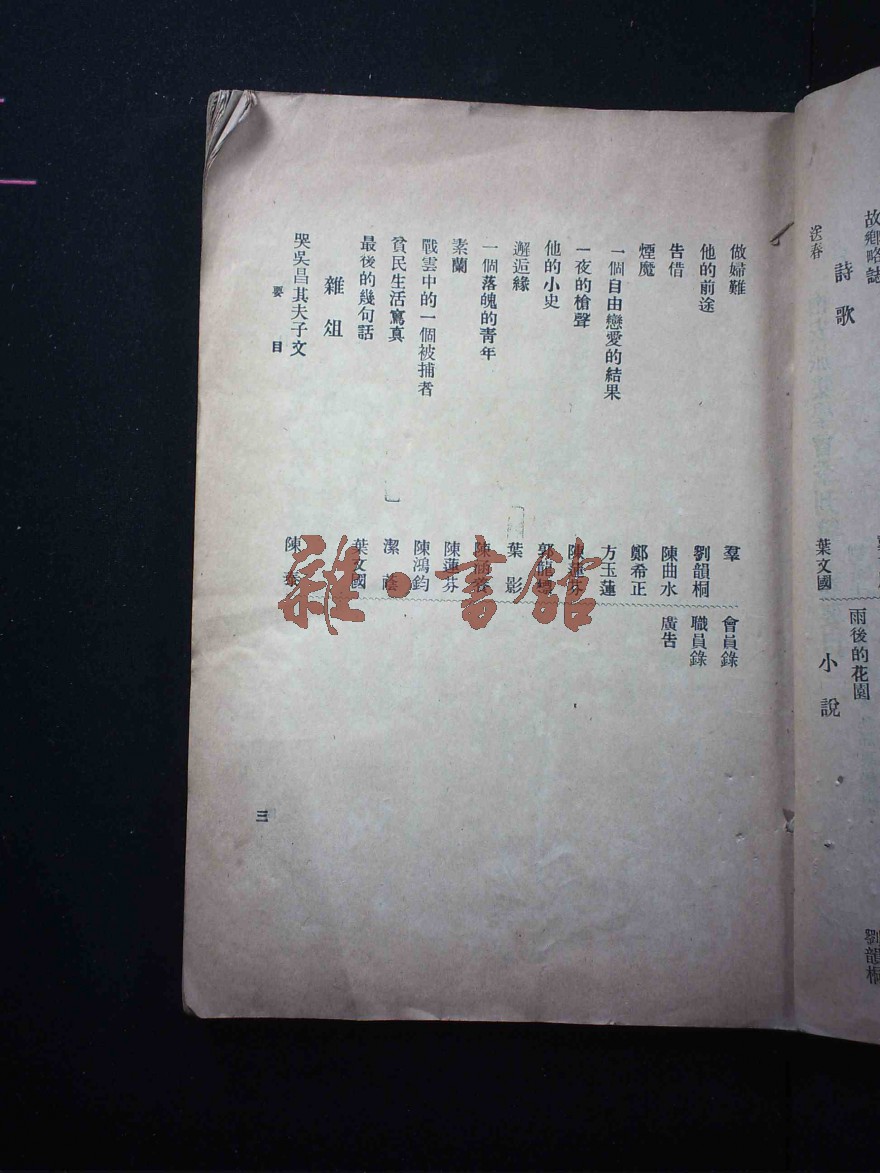 故鄉略誌
詩歌
送春 葉文國
雨後的花園 劉韻桐
小說
做婦難 羣
他的前途 劉韻桐
告借 陳曲水
煙魔 鄭希正
一個自由戀愛的結果 方玉蓮
一夜的槍聲 陳蓮芬
他的小史
邂逅緣 葉影
一個落魄的青年 陳
素蘭 陳蓮芬
戰雲中的一個被捕者 陳鴻鈞
貧民生活寫真 潔蔭
最後的幾句話 葉文國
雜俎
哭吳昌其夫子文 陳
會員錄
職員錄
廣告
要目
三
雜·書館